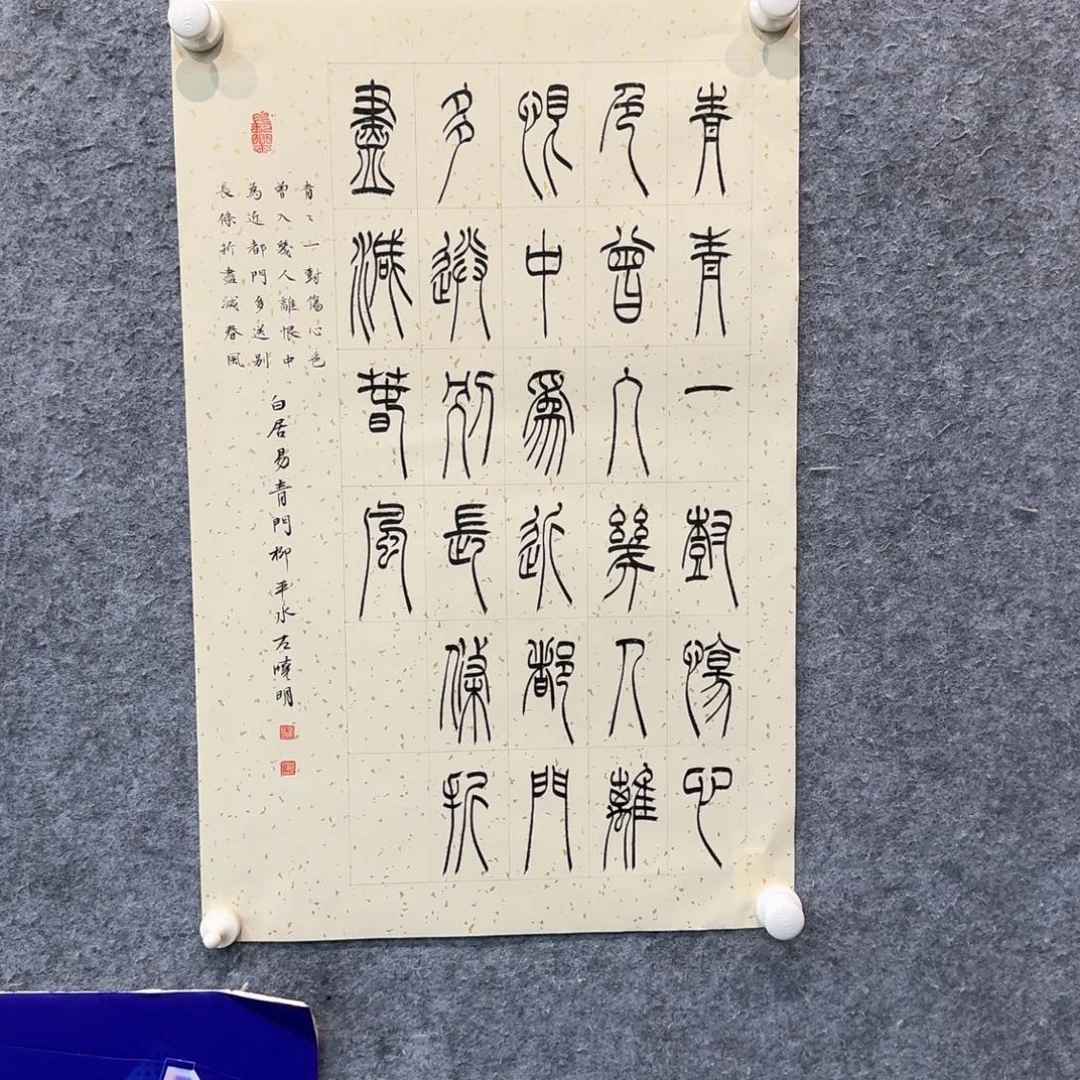 青青一對傷心
色曾入幾人離
恨中爲近都門
多送別長條折
盡減春風
青〻一對傷心色
曾入幾人離恨中
為近都門多送别
長條折盡减春風
白居易青門柳平水左曉明